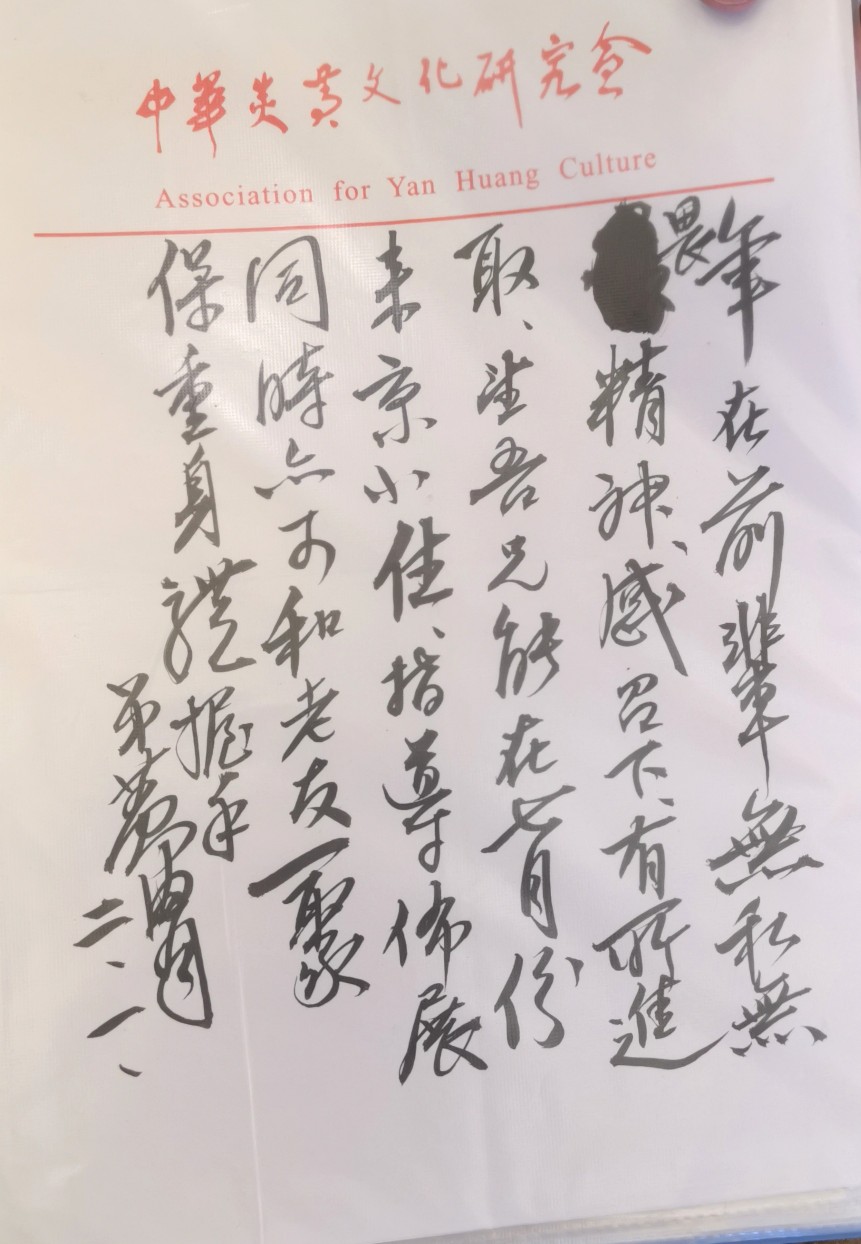 中華炎黄文化研究会
Association for Yan Huang Culture
年在前輩無私無
畏精神、感召下、有所進
取、望吾兄能在七月份
来京小住、指導佈展
同時亦可和老友一聚
保重身體握手
弟
二、一、